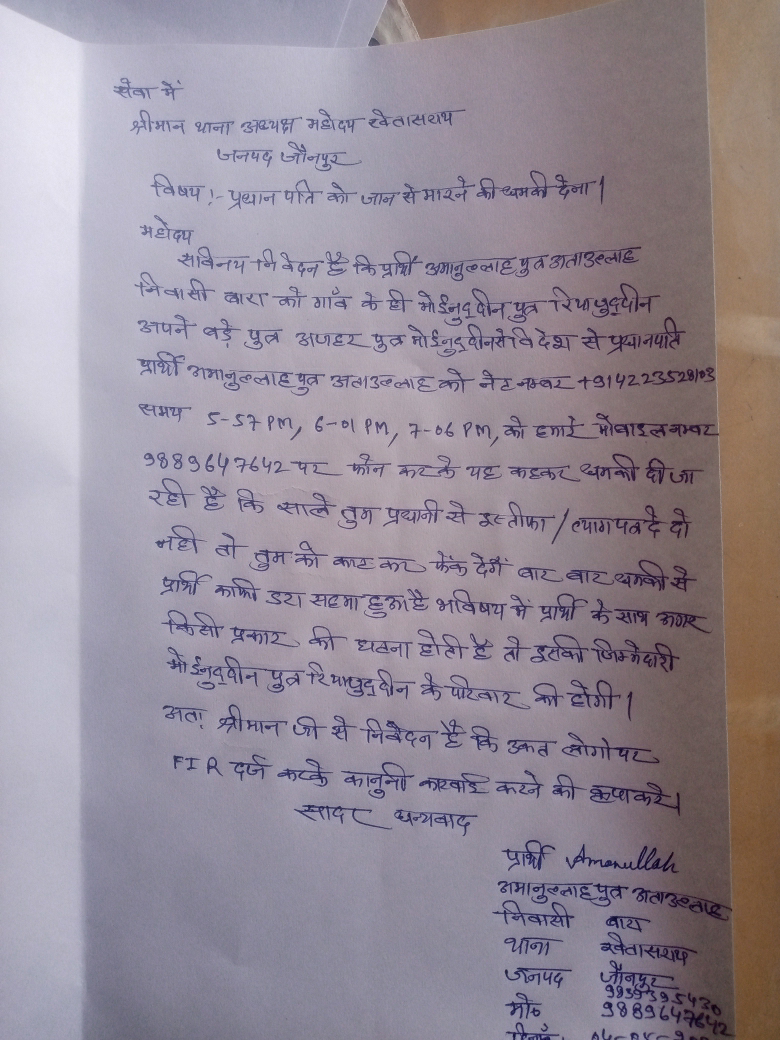 सेवा में
श्रीमान थाना अध्यक्ष महोदय खेतासराय
जनपद जौनपुर
विषय :- प्रधान पति को जान से मारने की धमकी देना |
महोदय
सविनय निवेदन है कि प्रार्थी अमानुल्लाह पुत्र अताउल्लाह
निवासी बारा को गाँव के ही मोईनुद्दीन पुत्र रियाजुद्दीन
अपने बड़े पुत्र अजहर पुत्र मोईनुद्दीन से विदेश से प्रधानपति
प्रार्थी अमानुल्लाह पुत्र अताउल्लाह को नेट नम्बर
समय 5-57 PM, 6-01 PM, 7-06 PM, को हमारे मोबाइल नम्बर
9889647642 पर फोन करके यह कहकर धमकी दी जा
रही है कि साले तुम प्रधानी से इस्तीफा / त्यागपत्र दे दो
नही तो तुम को काट कर फेंक देगें बार बार धमकी से
प्रार्थी काफी डरा सहमा हुआ है भविषय में प्रार्थी के साथ अगर
किसी प्रकार की घटना होती है तो इसकी जिम्मेदारी
मोईनुद्दीन पुत्र रियाजुद्दीन के परिवार की होगी |
अतः श्रीमान जी से निवेदन है कि उक्त लोगो पर
FIR दर्ज करके कानुनी कारवाई करने की कृपा करे |
सादर धन्यवाद
प्रार्थी Amanullah
अमानुल्लाह पुत्र अताउल्लाह
निवासी बारा
थाना खेतासराय
जनपद जौनपुर
मो० 9889647642